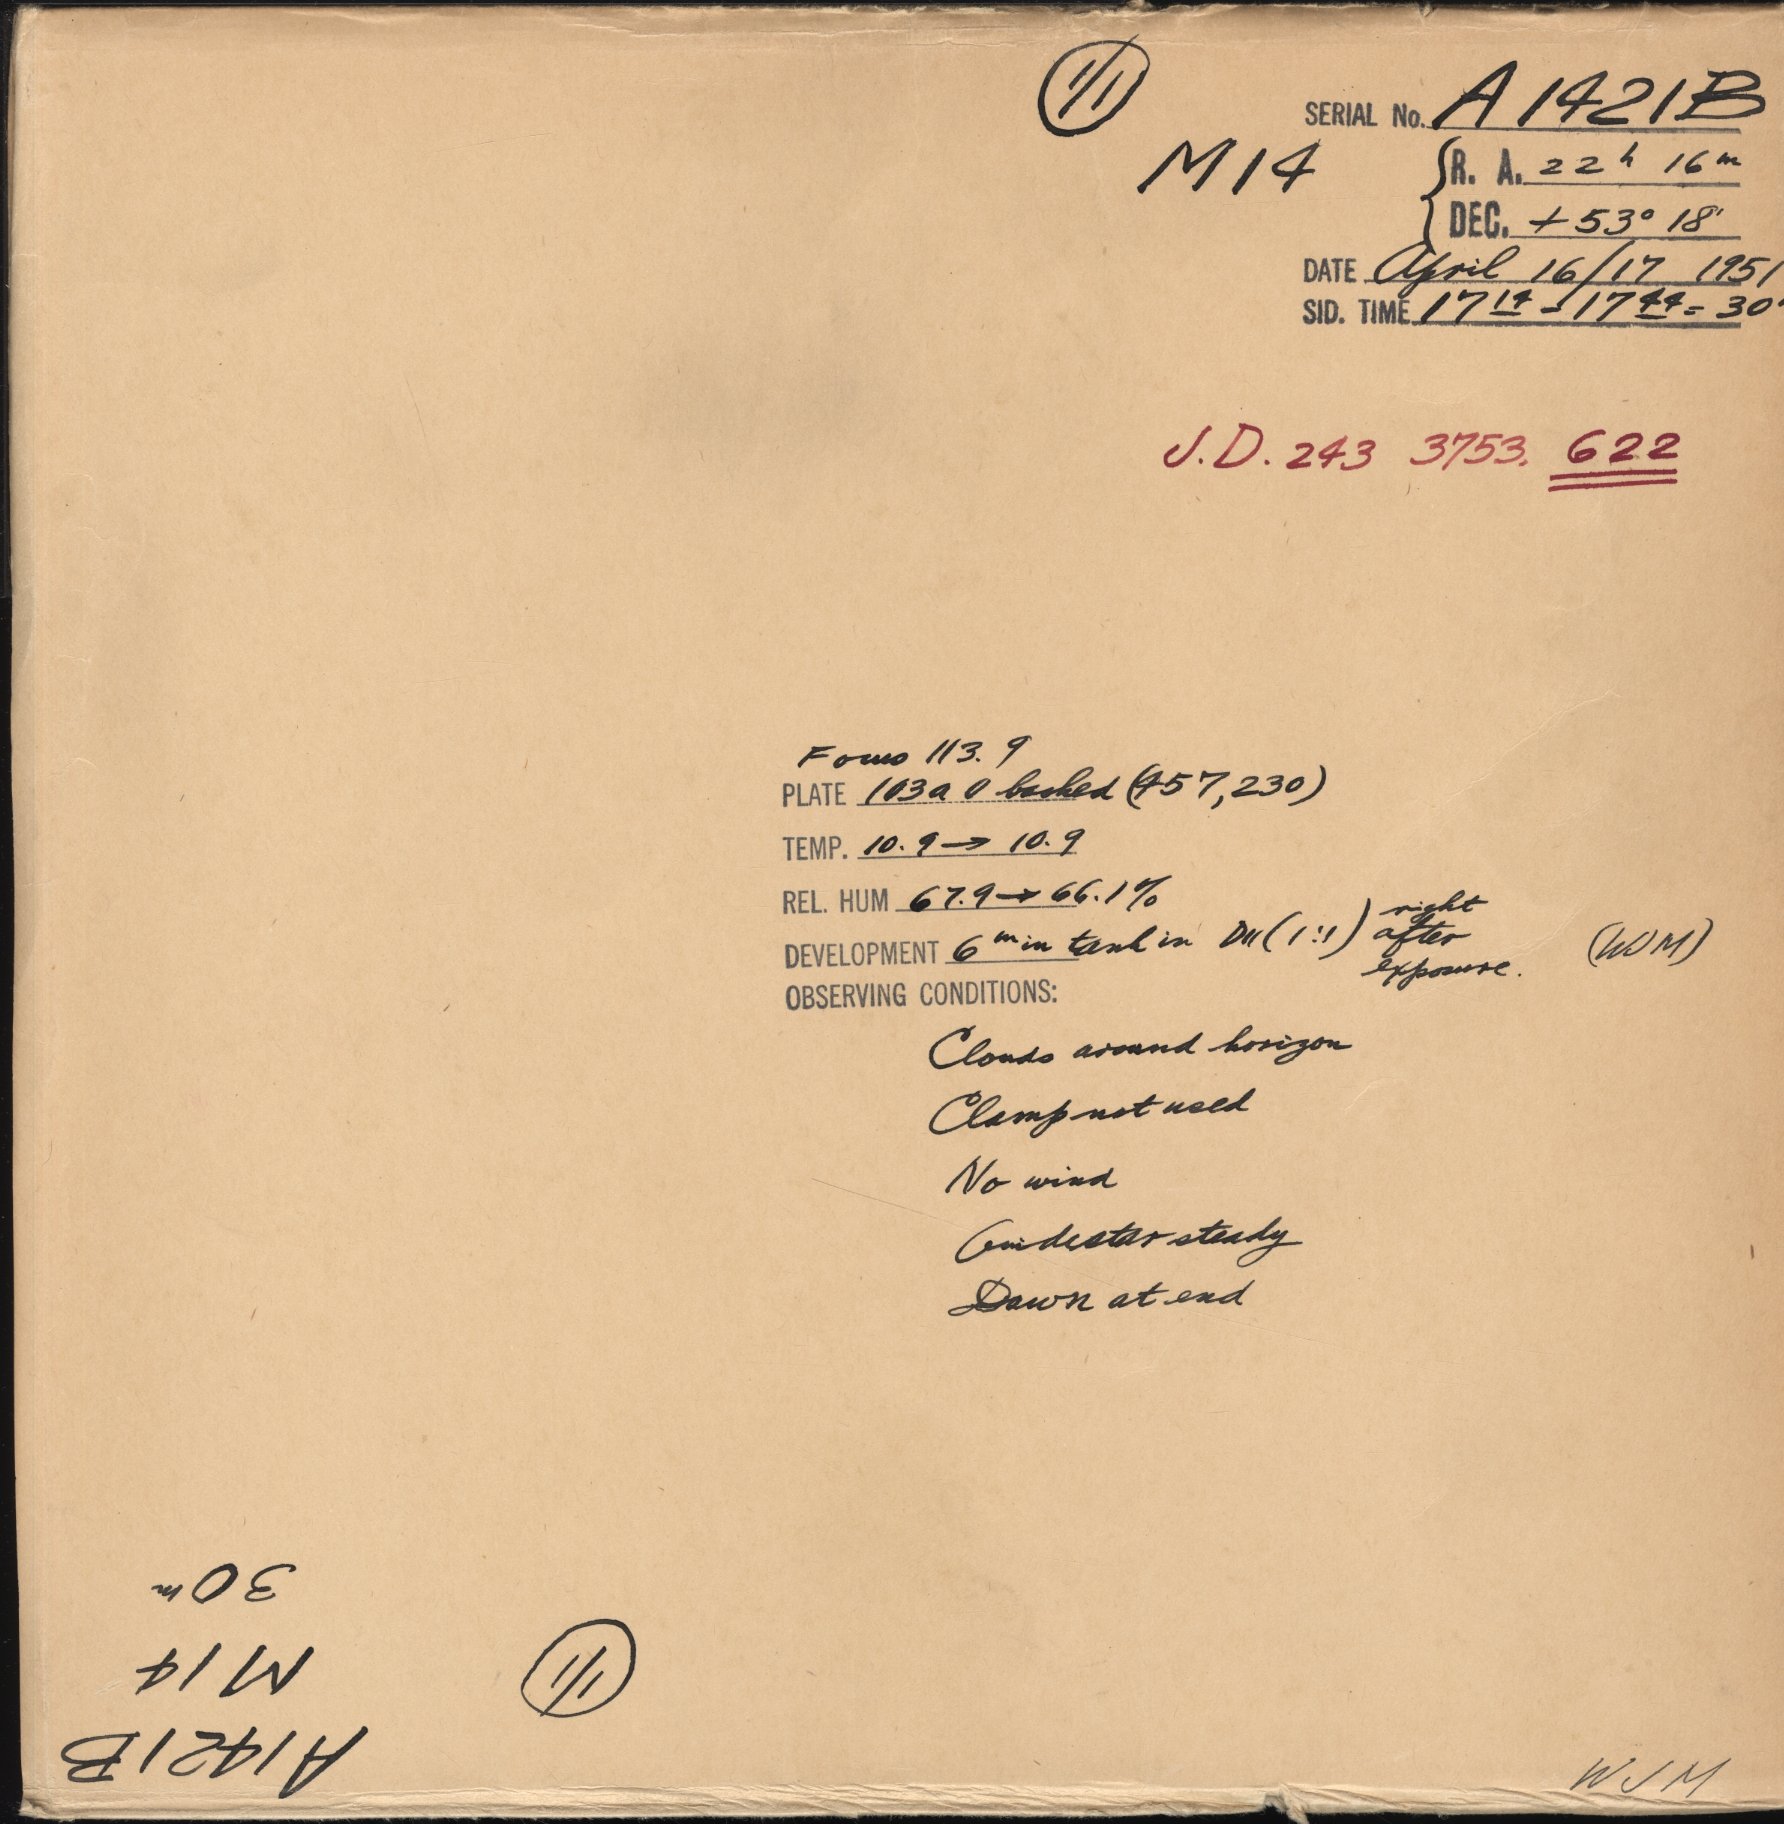 1/1
SERIAL No. A 1421B
M14
R. A. 22 h 16 m
DEC. +53° 18'
DATE April 16/17 1951
SID. TIME 17 14 - 17 44 = 30
J.D. 243 3753. 622
Focus 113.9
PLATE 103a O backed (457,230)
TEMP. 10.9 → 10.9
REL. HUM 67.9 → 66.1%
DEVELOPMENT 6 m in tank in D11 (1:1) right after exposure. (WJM)
OBSERVING CONDITIONS:
Clouds around horizon
Clamp not used
No wind
Guidestar steady
Dawn at end
A1421B
M14
30 m
1/1
WJM